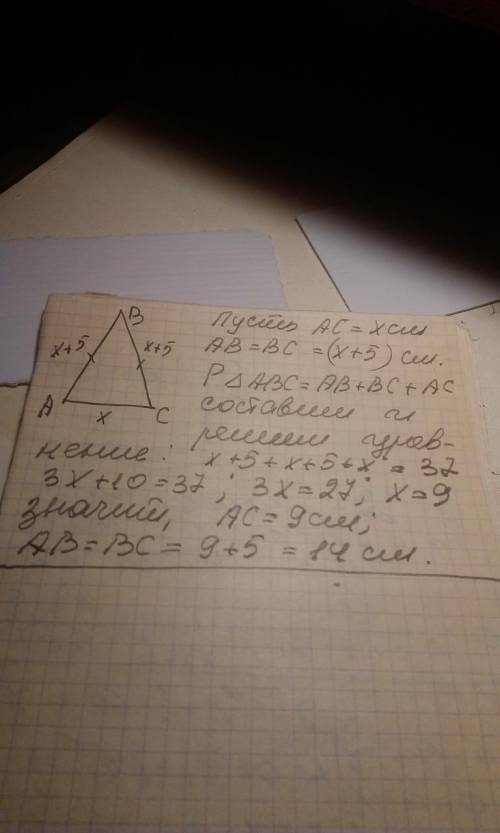 B
x+5 x+5
A x C
Пусть AC = x см
AB = BC = (x+5) см.
P△ABC = AB+BC+AC
составим и
решим урав-
нение: x+5+x+5+x = 37
3x+10=37; 3x=27; x=9
значит, AC = 9 см;
AB = BC = 9+5 = 14 см.